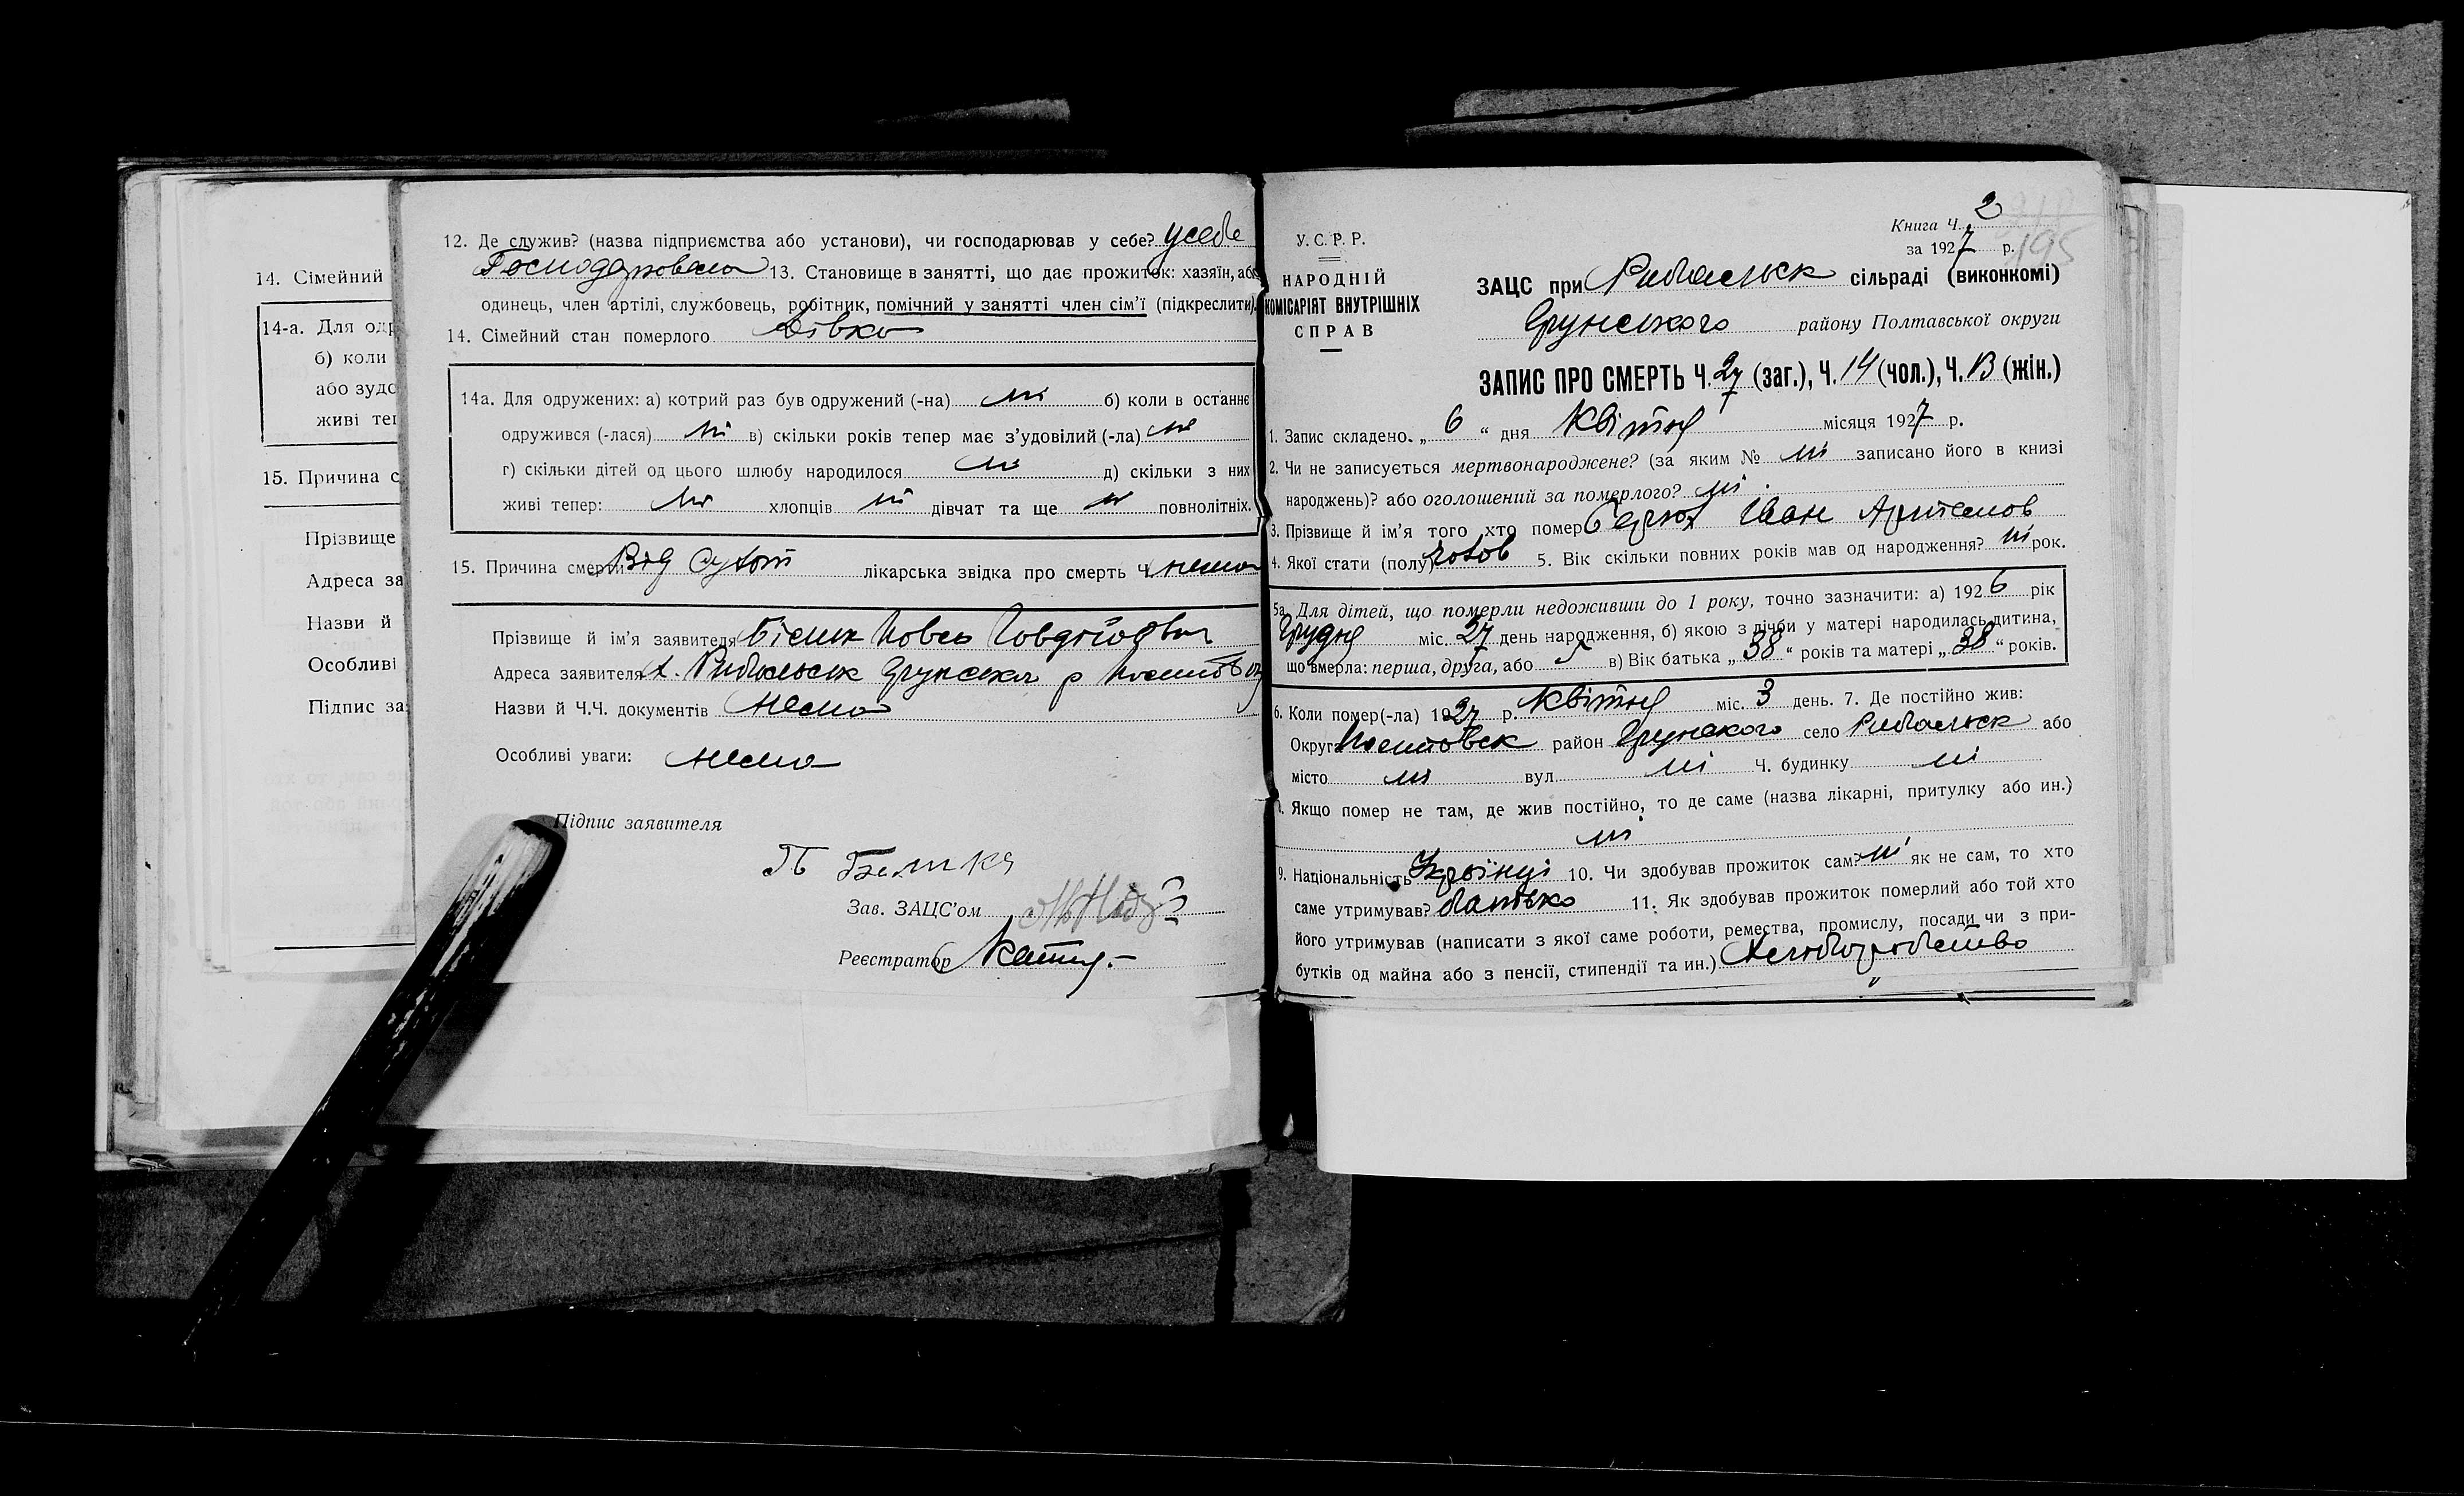 14. Сімейний
14-а. Для одр
б) коли
або зудо
живі теп
15. Причина с
Прізвище
Адреса за
Назви й
Особливі
Підпис за
12. Де служив? (назва підприємства або установи), чи господарював у себе? усебе
Господарювала 13. Становище в занятті, що дає прожиток: хазяїн, або
одинець, член артілі, службовець, робітник, помічний у занятті член сім'ї (підкреслити).
14. Сімейний стан померлого Дівка
14а. Для одружених: а) котрий раз був одружений (-на) ні б) коли в останнє
одружився (-лася) ні в) скільки років тепер має з'удовілий (-ла) ні
г) скільки дітей од цього шлюбу народилося ні д) скільки з них
живі тепер: ні хлопців ні дівчат та ще ні повнолітніх.
15. Причина смерти Від сухот лікарська звідка про смерть Ч. нема
Прізвище й ім'я заявителя
Адреса заявителя х. Рибальськ Грунськ р
Назви й Ч.Ч. документів Нема
Особливі уваги: нема
Підпис заявителя
Зав. ЗАЦС'ом
Реєстратор
У. С. Р. Р.
НАРОДНІЙ
КОМІСАРІЯТ ВНУТРІШНІХ
СПРАВ
Книга Ч. 2
за 1927 р.
195
ЗАЦС при Рибальськ сільраді (виконкомі)
Грунського району Полтавської округи
ЗАПИС ПРО СМЕРТЬ Ч. 27 (заг.), Ч. 14 (чол.), Ч. 13 (жін.)
1. Запис складено „ 6 “ дня Квітня місяця 1927 р.
2. Чи не записується мертвонароджене? (за яким № ні записано його в книзі
народжень)? або оголошений за померлого? ні.
3. Прізвище й ім'я того хто помер Іван
4. Якої стати (полу) чолов 5. Вік скільки повних років мав од народження? ні рок.
5а. Для дітей, що померли недоживши до 1 року, точно зазначити: а) 1926 рік
Грудня міс. 27 день народження, б) якою з лічби у матері народилась дитина,
що вмерла: перша, друга, або 5 в) Вік батька „ 38 “ років та матері „ 38 “ років.
6. Коли помер(-ла) 1927 р. Квітня міс. 3 день. 7. Де постійно жив:
Округ район Грунского село Рибальськ або
місто ні вул. ні Ч. будинку ні
8. Якщо помер не там, де жив постійно, то де саме (назва лікарні, притулку або ин.)
ні
9. Національність Українці 10. Чи здобував прожиток сам? ні як не сам, то хто
саме утримував? батько 11. Як здобував прожиток померлий або той хто
його утримував (написати з якої саме роботи, ремества, промислу, посади чи з при-
бутків од майна або з пенсії, стипендії та ин.) Хліборобство